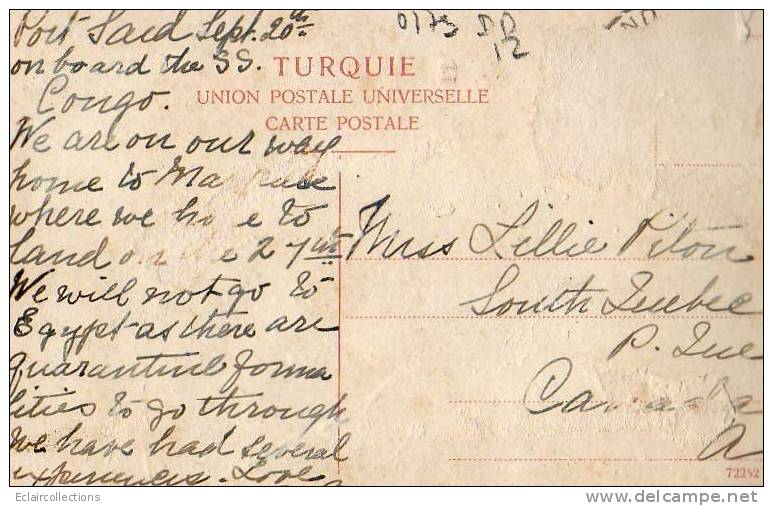 Port Said Sept. 20th
on board the SS.
Congo.
We are on our way
home to
where we to
land on 27th
We will not go to
Egypt as there are
quarantine forma
lities to go through
we have had several
experiences. Love
TURQUIE
UNION POSTALE UNIVERSELLE
CARTE POSTALE
Miss Lillie Piton
South Quebec
P. Que
Canada
72242
Eclaircollections
http://www.delcampe.net